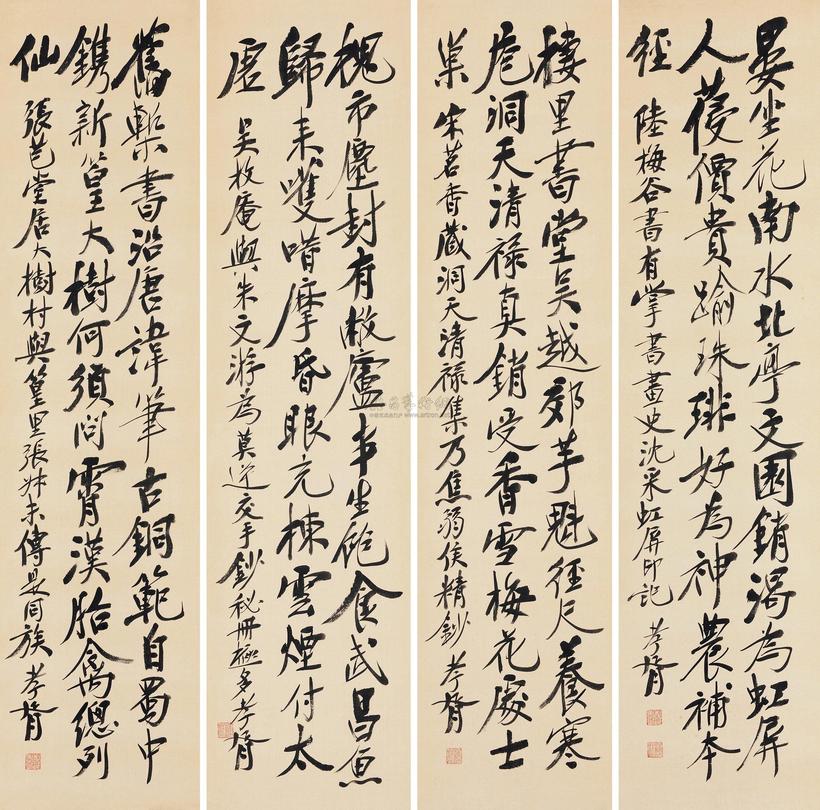 晏坐花南水北亭文園銷渴為虹屏
人蓡價貴踰珠琲好為神農補本
經 陸梅谷書有掌書畫史沈采虹屏印記 孝胥
棲里書堂吳越郊芋魁徑尺養寒
庖洞天清祿真銷受香雪梅花處士
巢 朱茗香藏洞天清祿集乃焦弱侯精鈔 孝胥
槐市塵封有敝廬半生飽食武昌魚
歸來嘆喈摩昏眼充棟雲煙付太
虛 吳枚庵與朱文游為莫逆交手鈔祕冊極多 孝胥
舊槧書沿唐諱筆古銅範自蜀中
鐫新篁大樹何須問霄漢胎禽總列
仙 張芑堂居大樹村與篁里張叔未傳是同族 孝胥